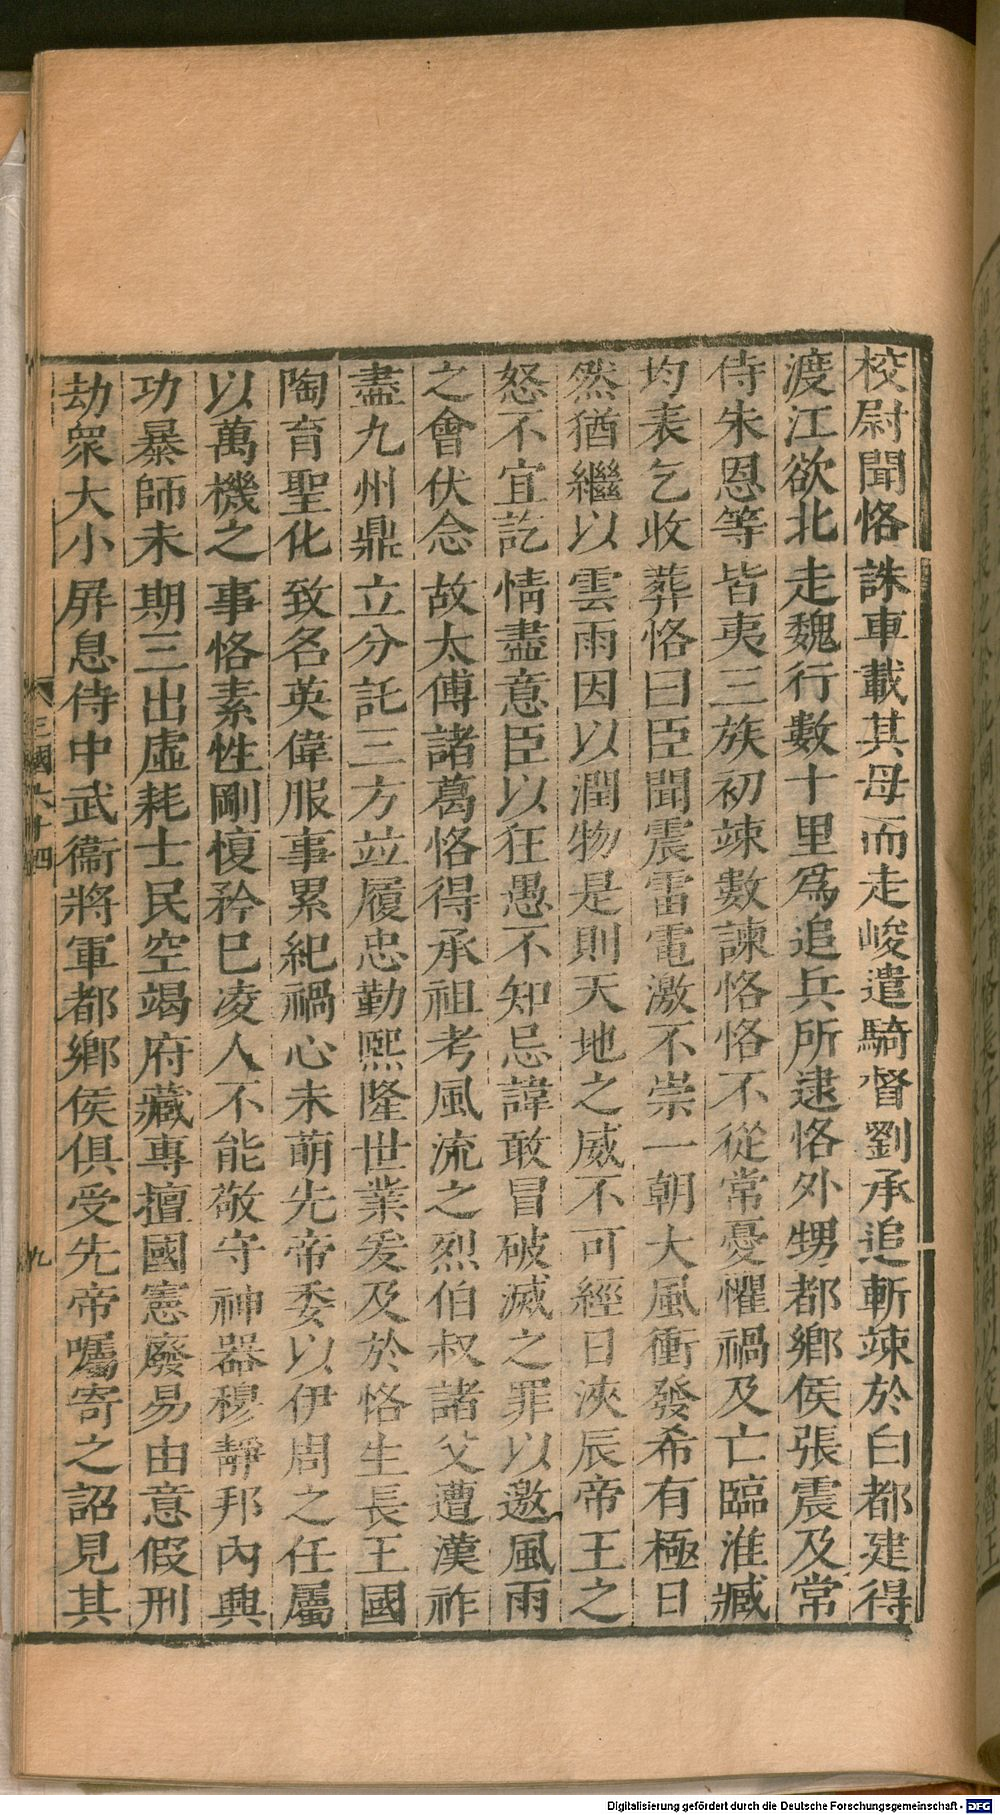 校尉聞恪誅車載其母而走峻遣騎督劉承追斬竦於白都建得
渡江欲北走魏行數十里爲追兵所逮恪外甥都鄉侯張震及常
侍朱恩等皆夷三族初竦數諫恪恪不從常憂懼禍及亡臨淮臧
均表乞收葬恪曰臣聞震雷電激不崇一朝大風衝發希有極日
然猶繼以雲雨因以潤物是則天地之威不可經日浹辰帝王之
怒不宜訖情盡意臣以狂愚不知忌諱敢冒破滅之罪以邀風雨
之會伏念故太傅諸葛恪得承祖考風流之烈伯叔諸父遭漢祚
盡九州鼎立分託三方竝履忠勤熙隆世業爰及於恪生長王國
陶育聖化致名英偉服事累紀禍心未萌先帝委以伊周之任屬
以萬機之事恪素性剛愎矜巳凌人不能敬守神器穆靜邦內興
功暴師未期三出虛耗士民空竭府藏專擅國憲廢易由意假刑
劫衆大小屏息侍中武衞將軍都鄉侯俱受先帝囑寄之詔見其
三國六十四
九
Digitalisierung gefördert durch die Deutsche Forschungsgemeinschaft - DFG